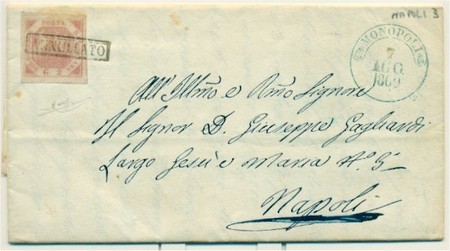 NAPOLI 3
ANNULLATO
MONOPOLI
7
AGO.
1860
All'Illmo e Rmo Signore
Il Signor D. Giuseppe Gagliardi
Largo Gesù e Maria No. 5
Napoli